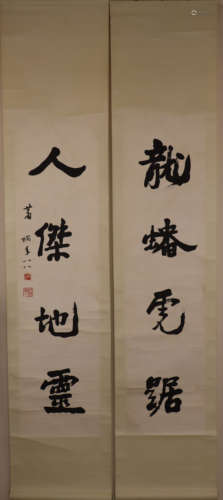 龍蟠虎踞
人傑地靈